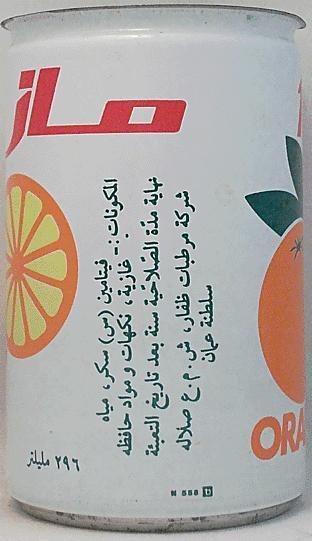 ماز
المكونات :- فيتامين (س) سكر ، مياه
غازية ، نكهات و مواد حافظه
نهاية مدّة الصّلاحية سنة بعد تاريخ التعبئة
شركة مرطبات ظفار، ش.م.ع صلاله
سلطنة عمان
٢٩٦ مليلتر
ORA
N 558 b